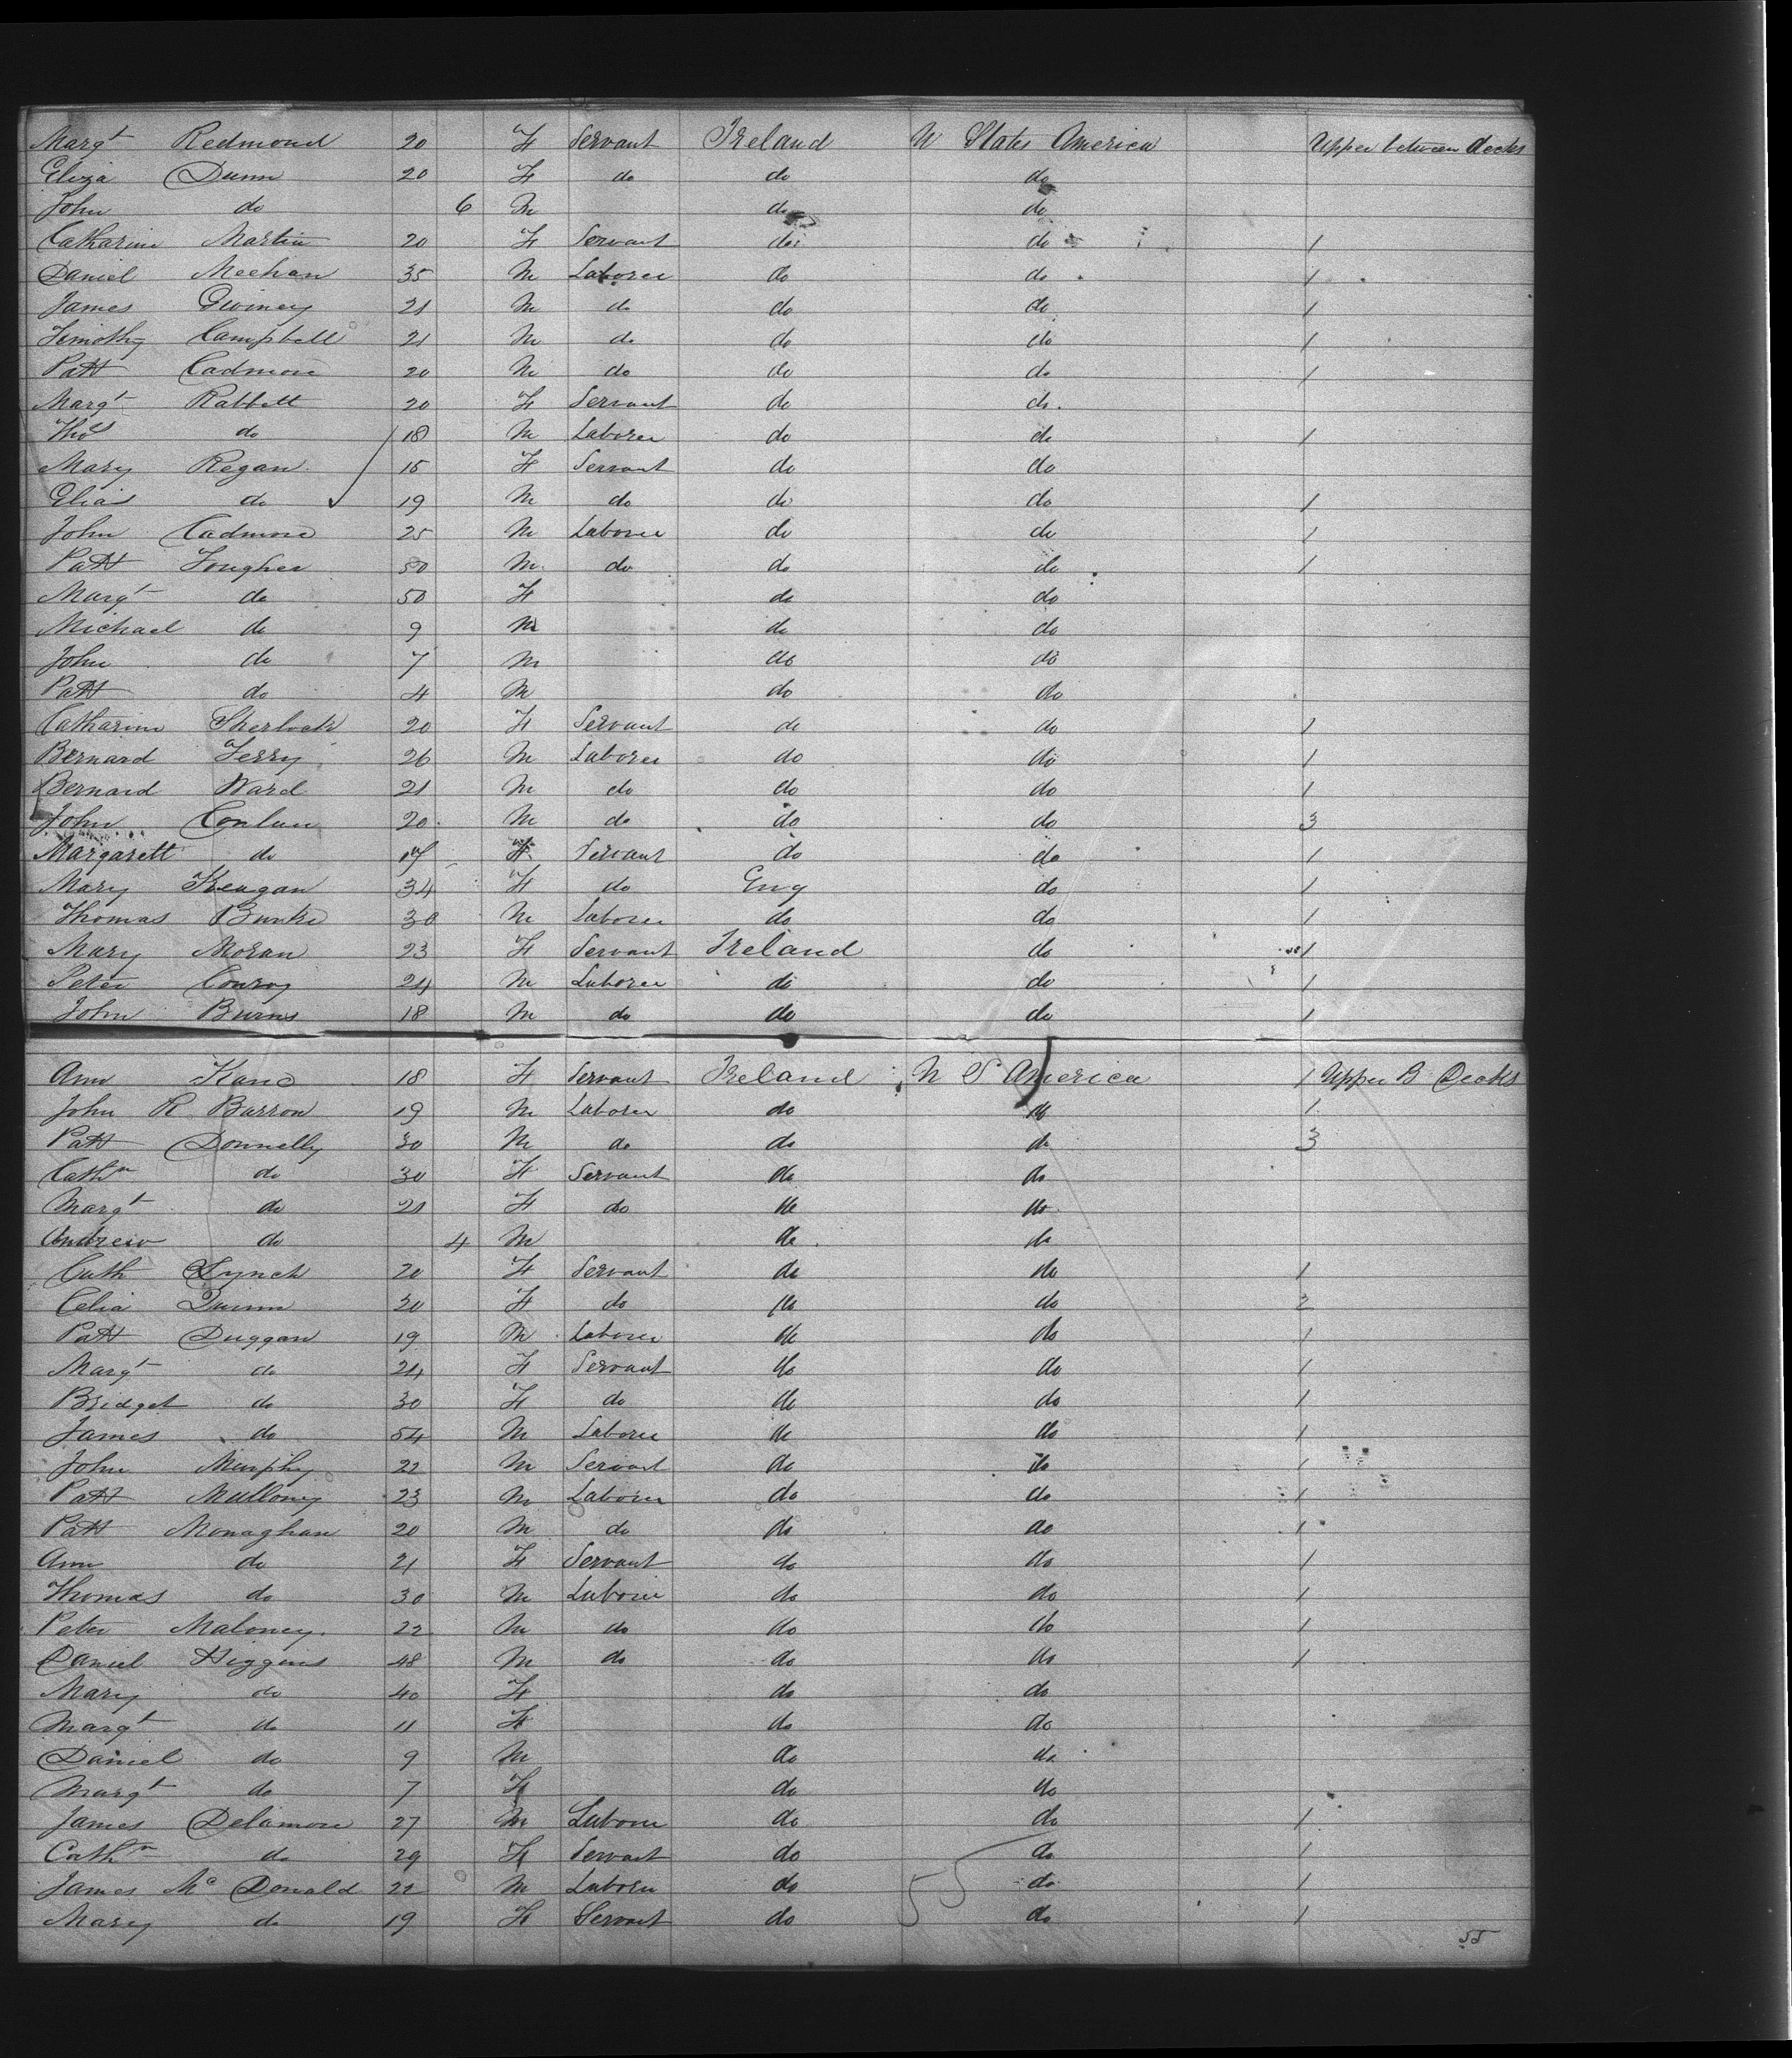 Margt Redmond 20 F Servant Ireland U States America Upper between decks
Eliza Dunn 20 F do do do
John do 6 M do do
Catharine Martin 20 F Servant do do 1
Daniel Meehan 35 M Laborer do do 1
James Gwiney 21 M do do do 1
Timothy Campbell 21 M do do do 1
Patt Cadmore 20 M do do do 1
Margt Rabbett 20 F Servant do do
Thos do 18 M Laborer do do 1
Mary Regan 15 F Servant do do
Elias do 19 M do do do 1
John Cadmore 25 M Laborer do do 1
Patt Fougher 50 M do do do 1
Margt do 50 F do do
Michael do 9 M do do
John do 7 M do do
Patt do 4 M do do
Catharine Sherlock 20 F Servant do do 1
Bernard Ferry 26 M Laborer do do 1
Bernard Ward 21 M do do do 1
John Conlan 20 M do do do 3
Margarett do 17 F Servant do do 1
Mary Keagan 34 F do Eng do 1
Thomas Burke 30 M Laborer do do 1
Mary Moran 23 F Servant Ireland do 1
Peter Conroy 24 M Laborer do do 1
John Burns 18 M do do do 1
Ann Kane 18 F Servant Ireland U S America 1 Upper B Decks
John R Barron 19 M Laborer do do 1
Patt Donnelly 30 M do do do 3
Cathn do 30 F Servant do do
Margt do 21 F do do do
Andrew do 4 M do do
Cath Lynch 20 F Servant do do 1
Celia Quinn 30 F do do do 2
Patt Duggan 19 M Laborer do do 1
Margt do 24 F Servant do do 1
Bridget do 30 F do do do 1
James do 54 M Laborer do do 1
John Murphy 22 M Servant do do 1
Patt Mullony 23 M Laborer do do 1
Patt Monaghan 20 M do do do 1
Ann do 21 F Servant do do 1
Thomas do 30 M Laborer do do 1
Peter Maloney 22 M do do do 1
Daniel Higgins 48 M do do do 1
Mary do 40 F do do
Margt do 11 F do do
Daniel do 9 M do do
Margt do 7 F do do
James Delamore 27 M Laborer do do 1
Cathn do 29 F Servant do do 1
James Mc Donald 22 M Laborer do do 1
Mary do 19 F Servant do 55 do 1
55